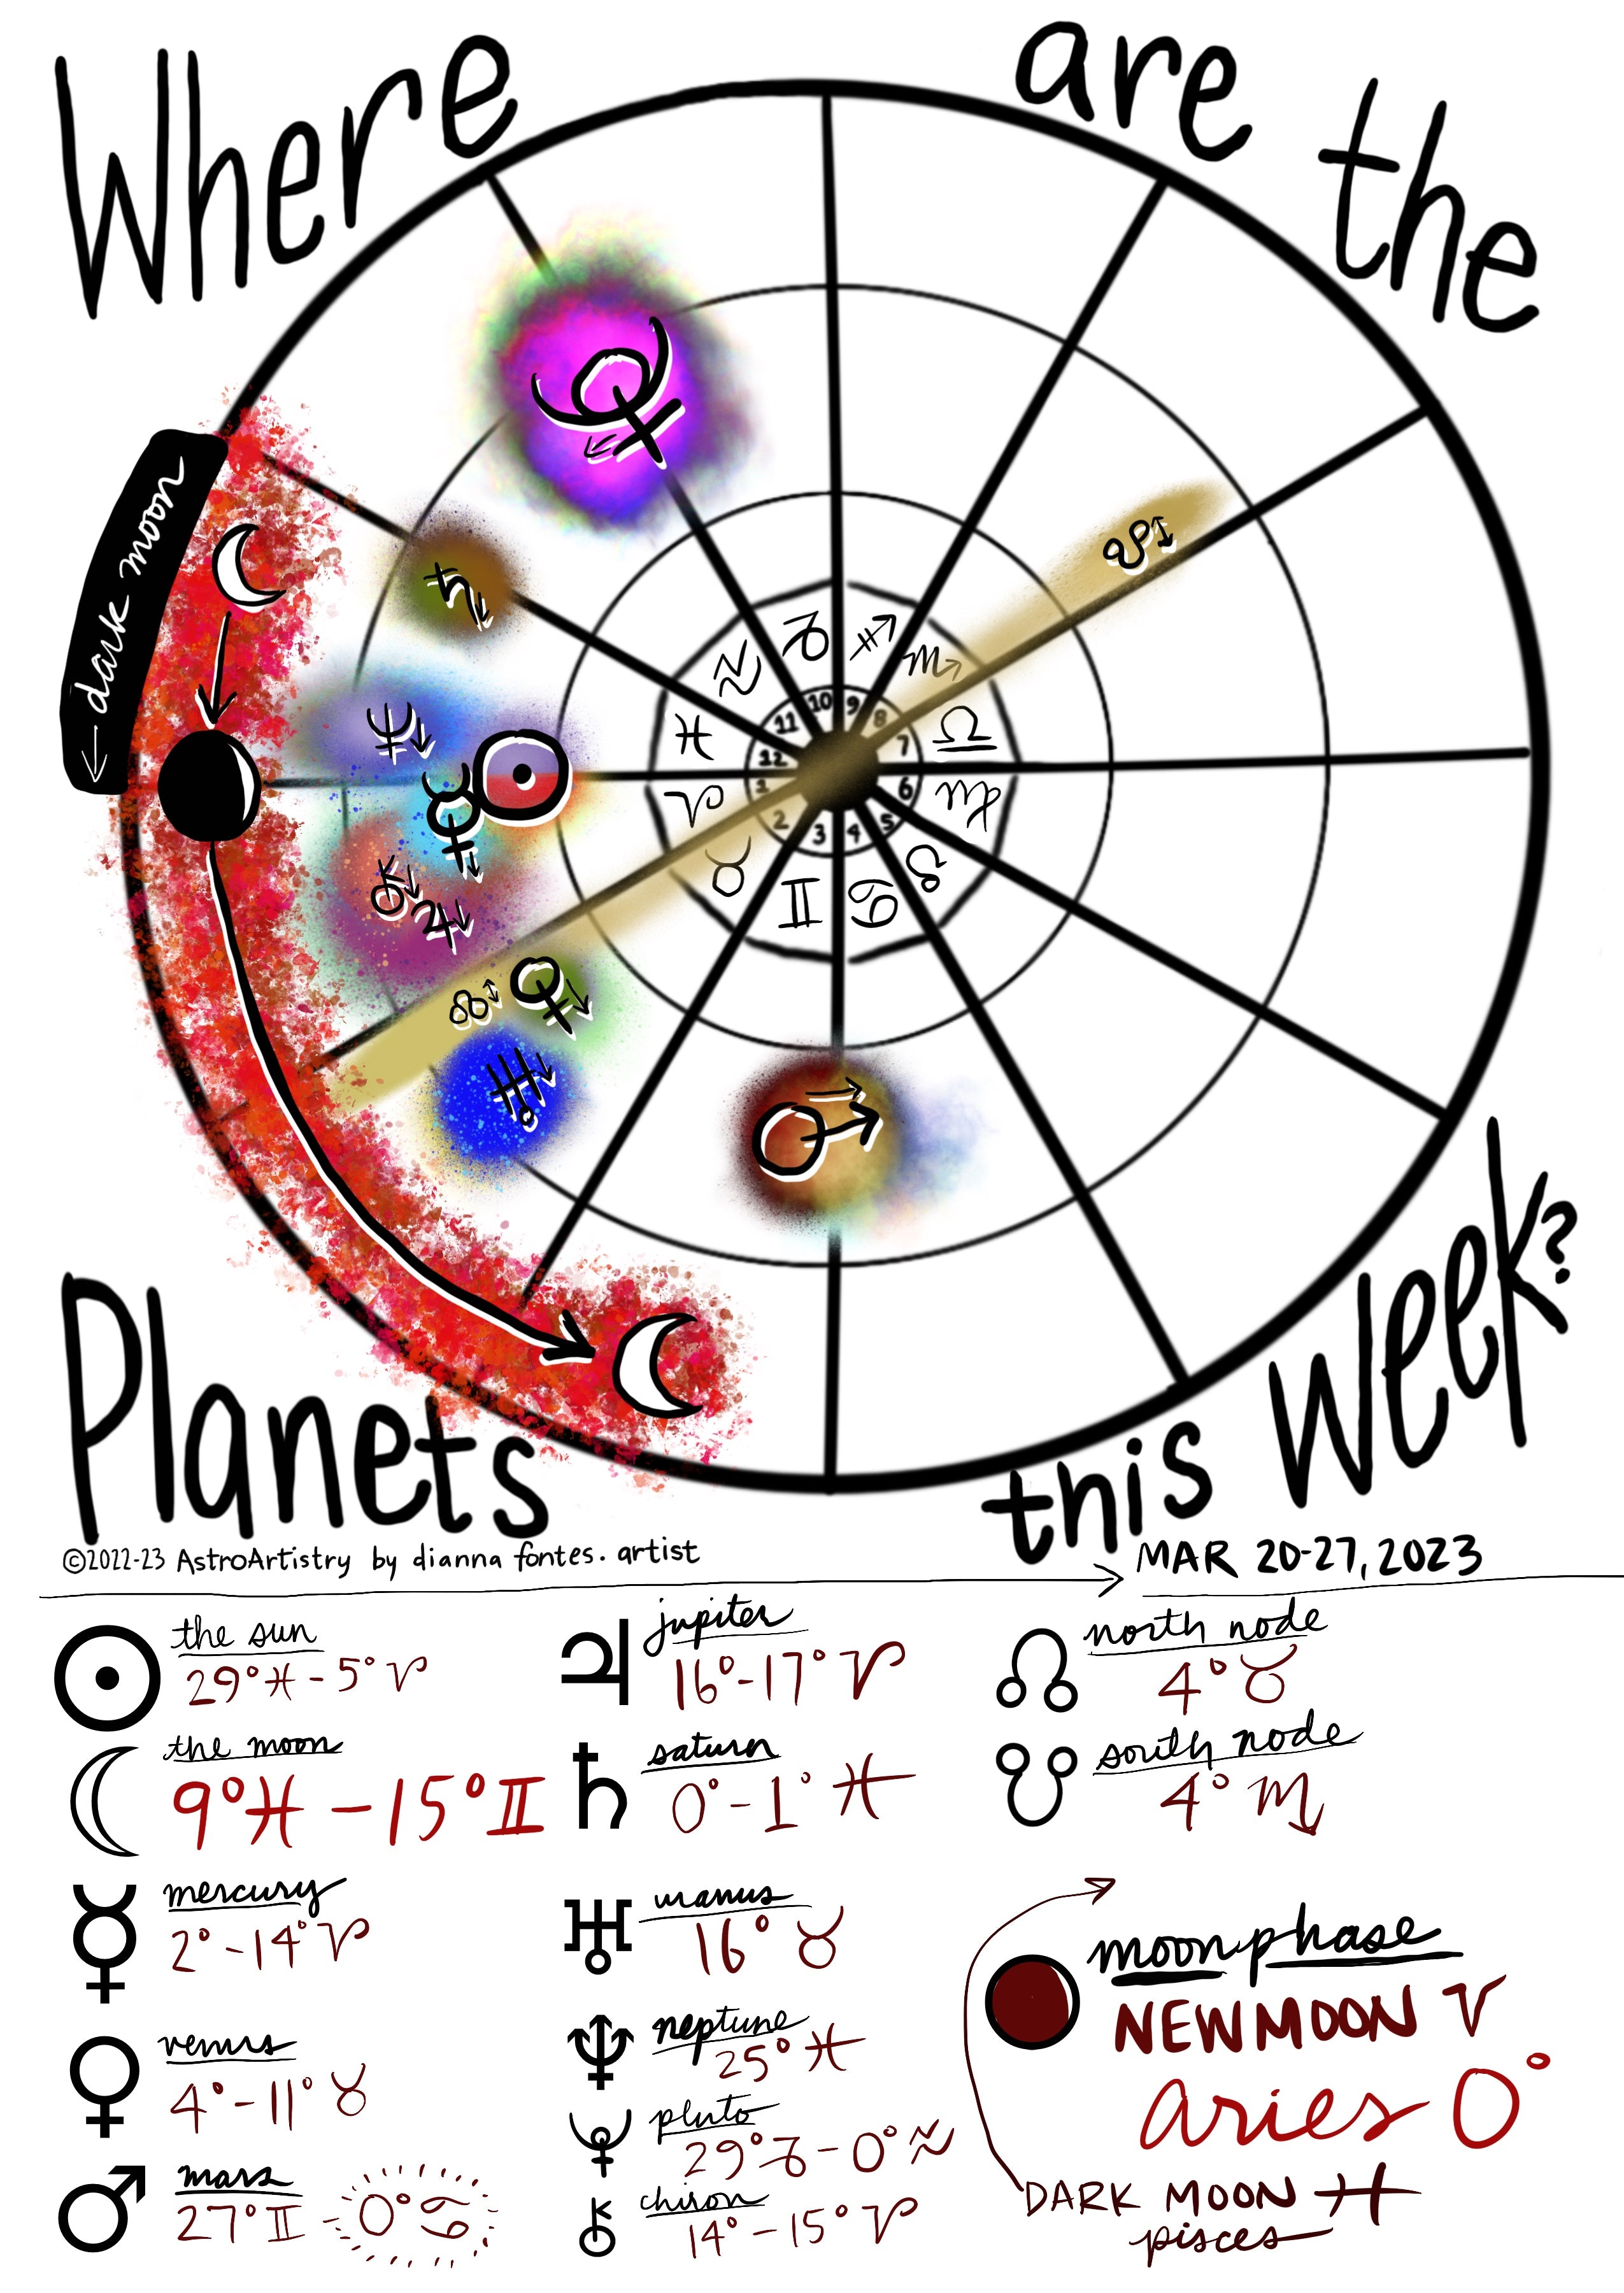 Where are the
← dark moon
♑ ♐
♒ ♏
♓ ♎
♈ ♍
♉ ♌
♊ ♋
10 9
11 8
12 7
1 6
2 5
3 4
Planets this Week?
©2022-23 AstroArtistry by dianna fontes.artist
MAR 20-27, 2023
the sun
29°♓ - 5°♈
the moon
9°♓ - 15°♊
mercury
2° - 14°♈
venus
4° - 11°♉
mars
27°♊ - 0°♋
jupiter
16° - 17°♈
saturn
0° - 1°♓
uranus
16°♉
neptune
25°♓
pluto
29°♑ - 0°♒
chiron
14° - 15°♈
north node
4°♉
south node
4°♏
moonphase
NEW MOON ♈
aries 0°
DARK MOON ♓
pisces